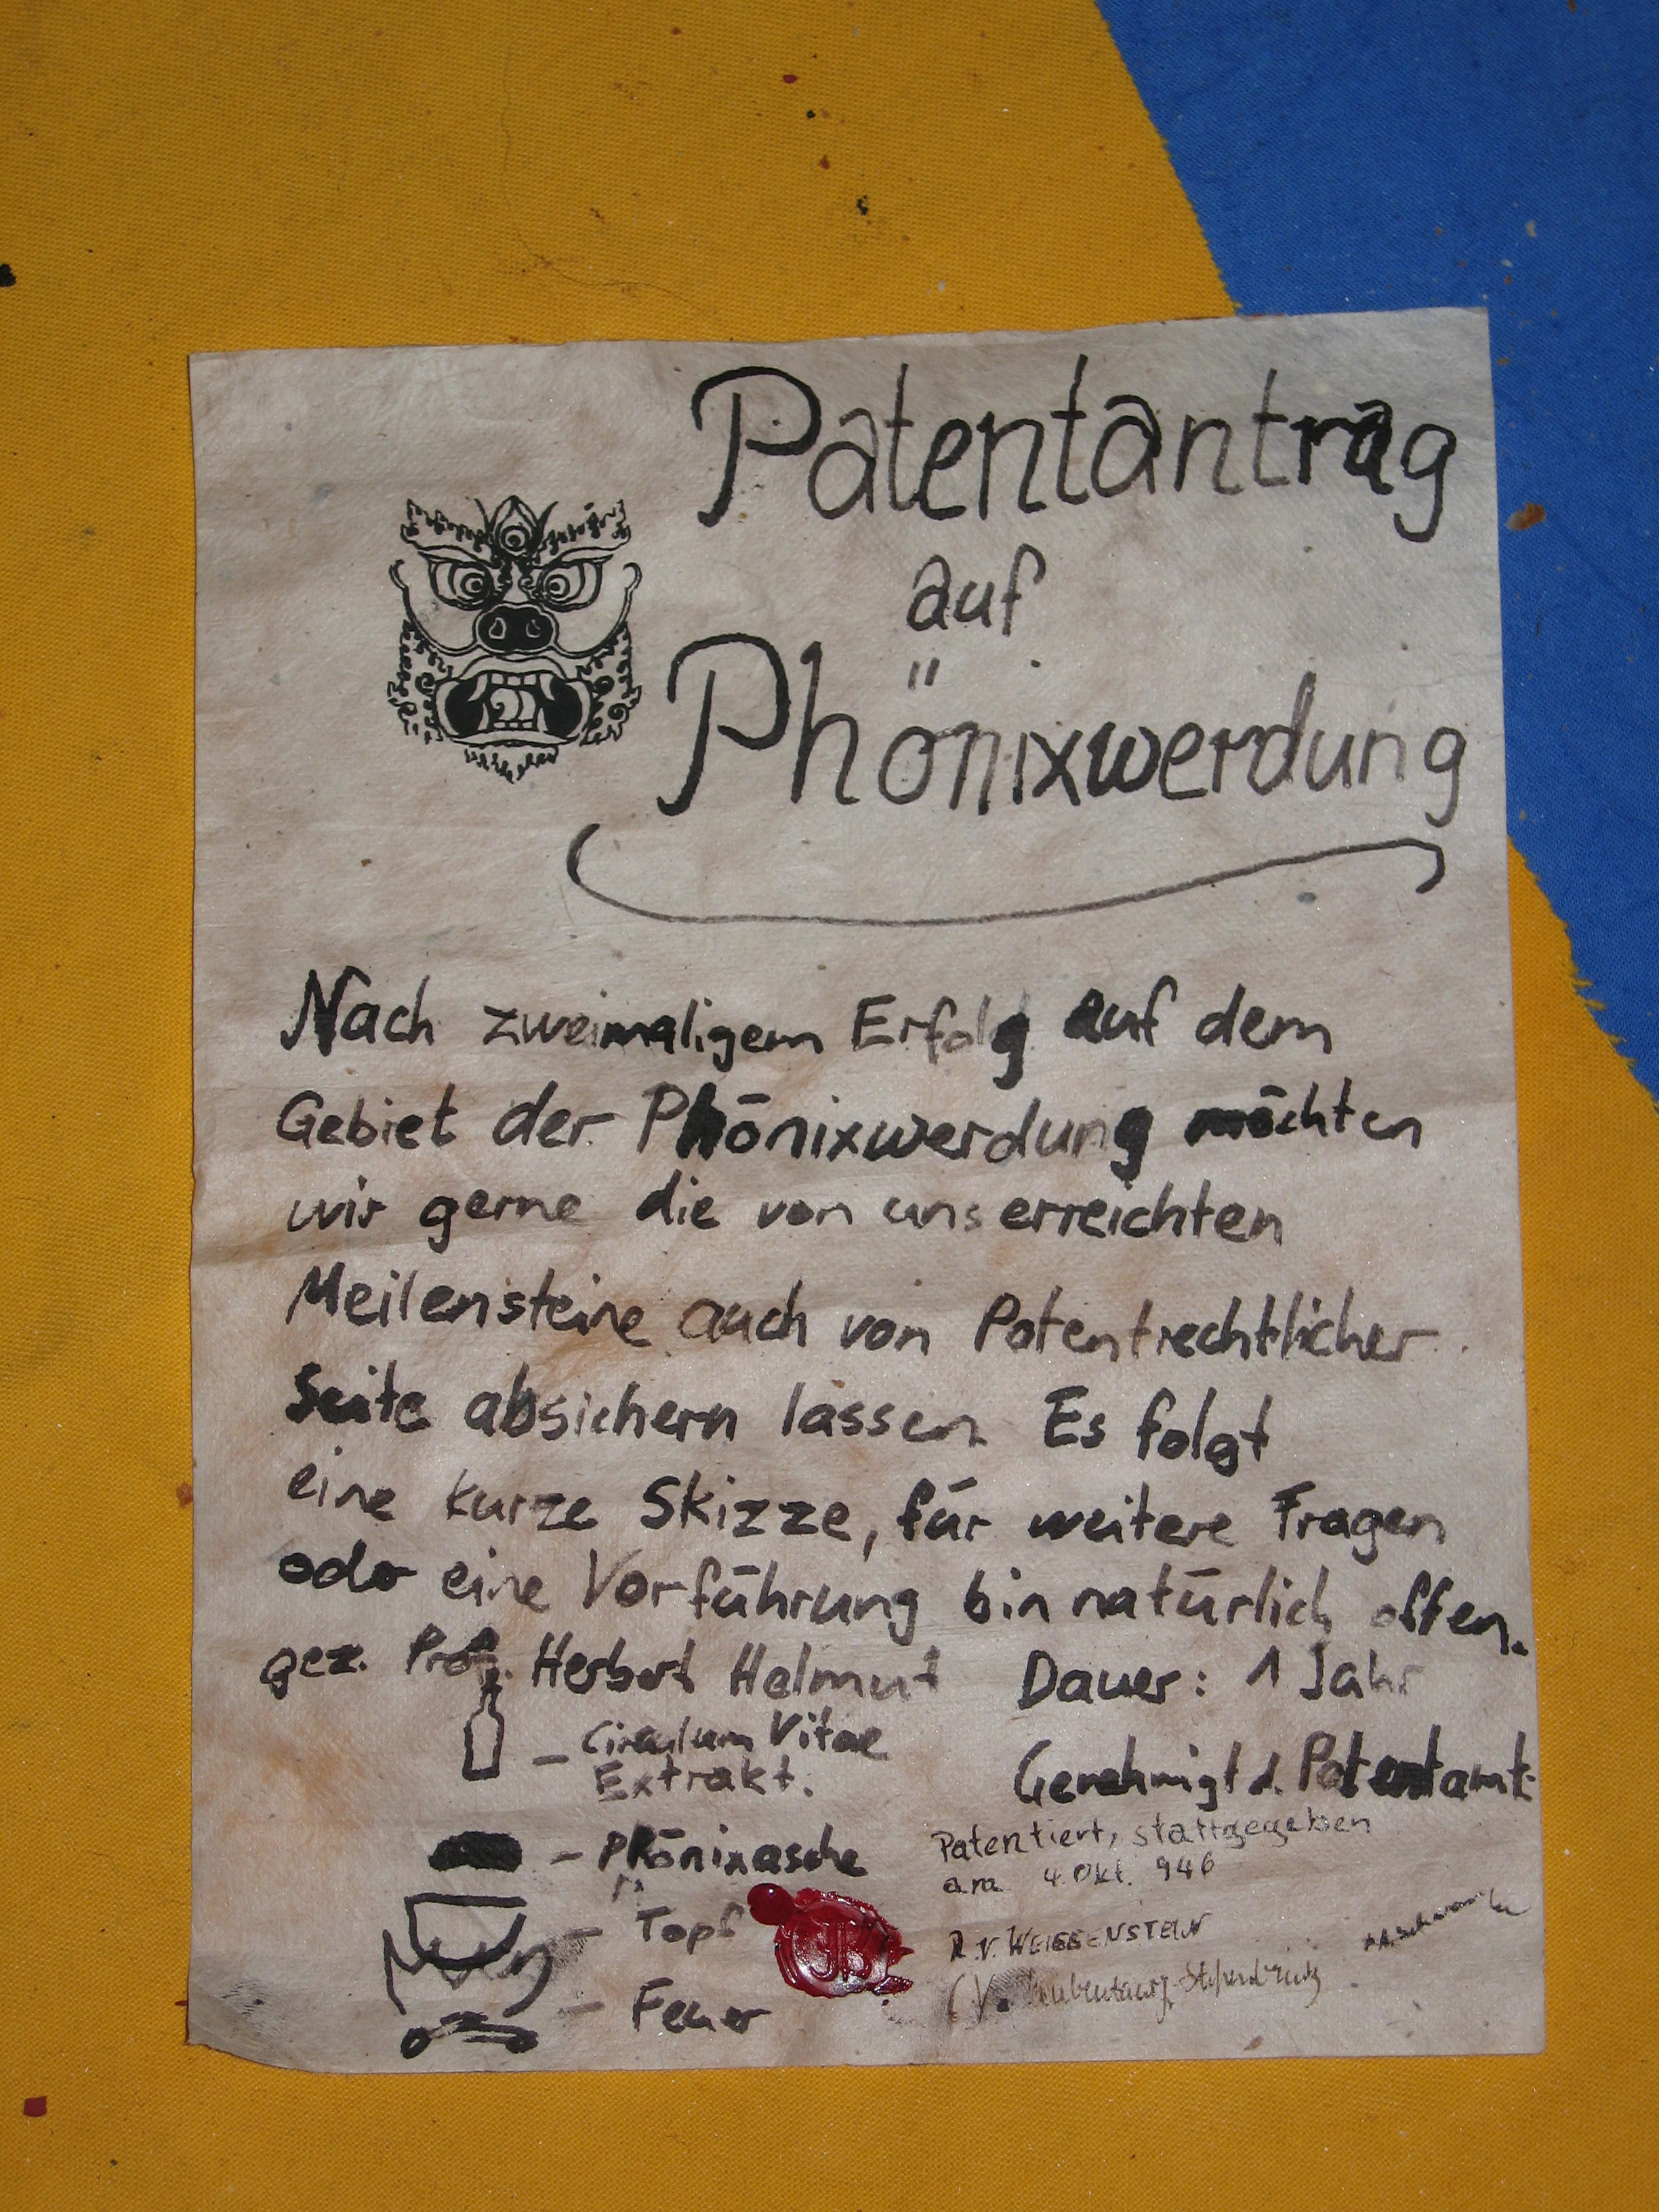 Patentantrag
auf
Phönixwerdung
Nach zweimaligem Erfolg auf dem
Gebiet der Phōnixwerdung mōchten
wir gerne die von uns erreichten
Meilensteine auch von Patentrechtlicher
Seite absichern lassen. Es folgt
eine kurze Skizze, für weitere Fragen
oder eine Vorfūhrung bin natūrlich offen.
gez. Prof. Herbert Helmut
Dauer: 1 Jahr
Circulum Vitae
Extrakt.
Genehmigt d. Patentamt
Patentiert, stattgegeben
am 4. Okt. 946
- Phōnixasche
- Topf
- Feuer
JB
R. V. WEISSENSTEIN